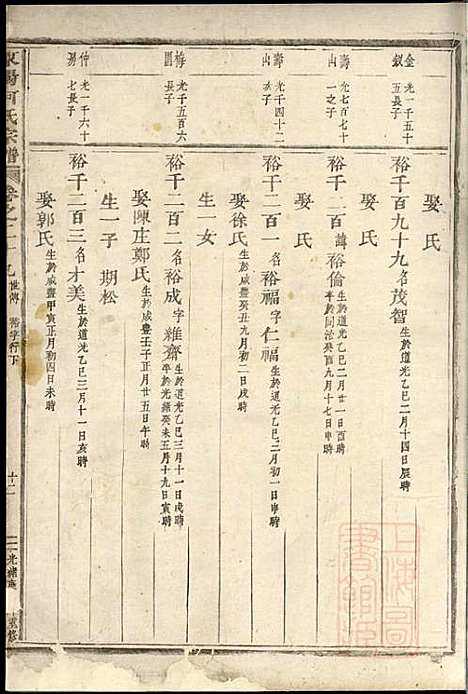 金釵 光一千五十五長子
裕千百九十九名茂智 生於道光乙巳二月十四日辰時
娶 氏
壽山 光七百七十一之子
裕千二百諱裕倫 生於道光乙巳二月廿一日酉時 卒於同治癸酉九月十七日申時
娶 氏
壽山 光千四十二長子
裕千二百一名裕福字仁福 生於道光乙巳二月初一日申時
娶徐氏 生於咸豐癸丑九月初二日戌時
生一女
梅園 光千五百六長子
裕千二百二名裕成字雜齋 生於道光乙巳三月十一日戌時 卒於光緒癸未五月十九日寅時
娶陳庄鄭氏 生於咸豐壬子正月廿五日午時
生一子 期松
仲 光一千六十七長子
裕千二百三名才美 生於道光乙巳三月十一日亥時
娶郭氏 生於咸豐甲寅正月初四日未時
陽何氏宗譜 卷之二十九 世傳 裕字行下 十二 光緒 重修
上海圖書館藏